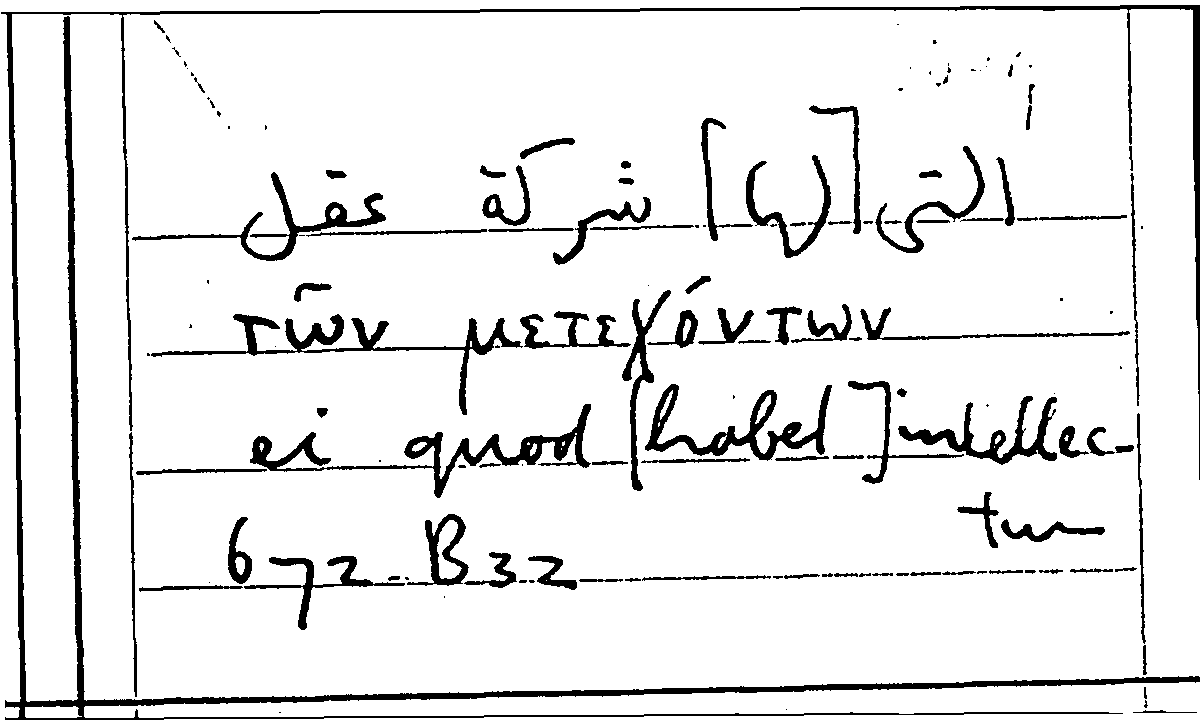 التى [لها] شركة عقل
τῶν μετεχόντων
ei quod [habet] intellec-
tum
672 - B32